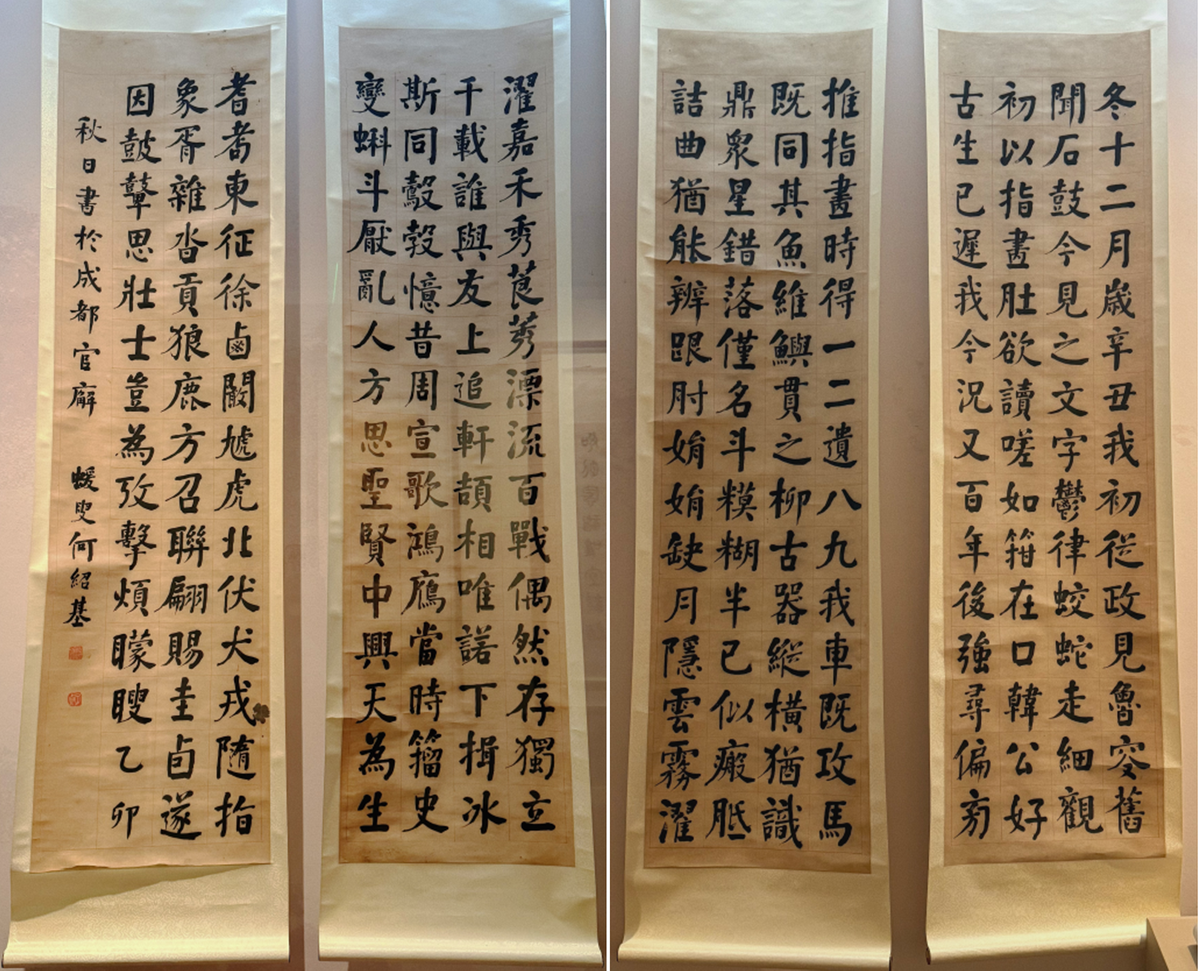 冬十二月歲辛丑我初從政見魯叟舊
聞石鼓今見之文字鬱律蛟蛇走細觀
初以指畫肚欲讀嗟如箝在口韓公好
古生已遲我今況又百年後強尋偏旁
推指畫時得一二遺八九我車既攻馬
既同其魚維鱮貫之柳古器縱橫猶識
鼎眾星錯落僅名斗糢糊半已似瘢胝
詰曲猶能辨跟肘娟娟缺月隱雲霧濯
濯嘉禾秀莨莠漂流百戰偶然存獨立
千載誰與友上追軒頡相唯諾下揖冰
斯同鷇㝅憶昔周宣歌鴻鴈當時籀史
變蝌斗厭亂人方思聖賢中興天為生
耆耇東征徐鹵闞虓虎北伏犬戎隨指
象胥雜沓貢狼鹿方召聯翩賜圭卣遂
因鼓鼙思壯士豈為攷擊煩矇瞍乙卯
秋日書於成都官廨 蝯叟何紹基